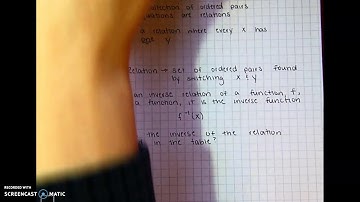 collection of ordered pairs
equations are relations
a relation where every x has
one y
Relation → set of ordered pairs found
by switching x & y
an inverse relation of a function, f,
a function, it is the inverse function
f⁻¹(x)
the inverse of the relation
in the table?
RECORDED WITH
SCREENCAST MATIC